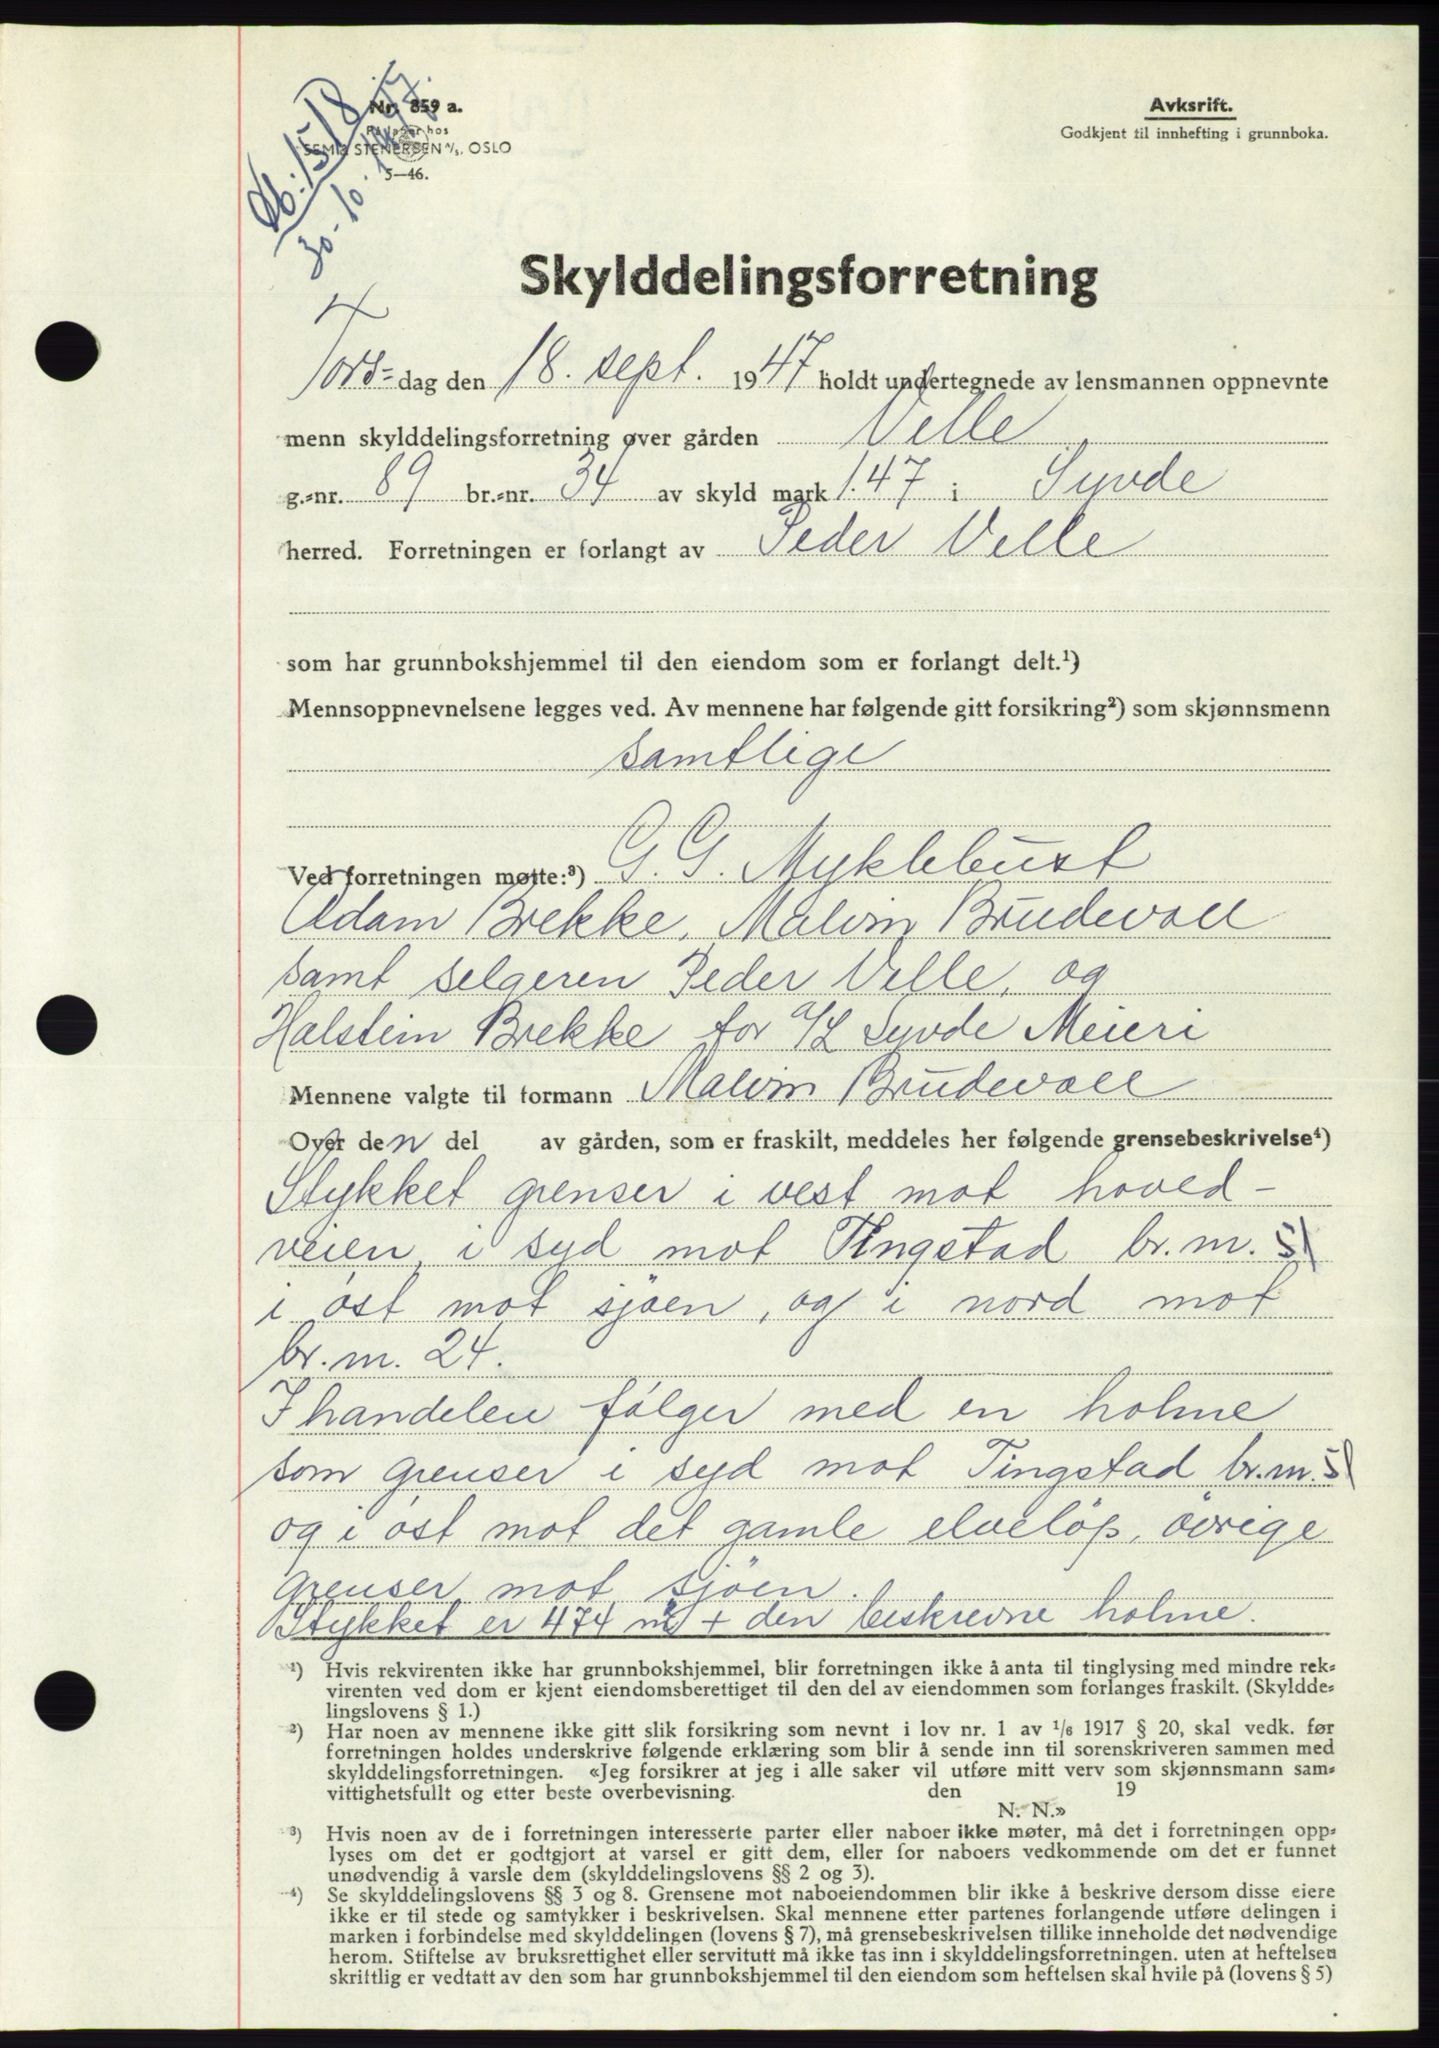 Nr. 859 a.
Avksrift.
Godkjent til innhefting i grunnboka.
SEM & STENERSEN A/S, OSLO
5—46.
1518
30-10-1947.
Skylddelingsforretning
Tors= dag den 18. sept. 1947 holdt undertegnede av lensmannen oppnevnte
menn skylddelingsforretning over gården Velle
g.=nr. 89 br.=nr. 34 av skyld mark 1.47 i Syvde
herred. Forretningen er forlangt av Peder Velle
som har grunnbokshjemmel til den eiendom som er forlangt delt.¹)
Mennsoppnevnelsene legges ved. Av mennene har følgende gitt forsikring²) som skjønnsmenn
samtlige
Ved forretningen møtte:³) G. G. Myklebust
Adam Brekke, Malvin Brudevoll
samt selgeren Peder Velle, og
Halstein Brekke for A/L Syvde Meieri
Mennene valgte til formann Malvin Brudevoll
Over den del av gården, som er fraskilt, meddeles her følgende grensebeskrivelse⁴)
Stykket grenser i vest mot hoved-
veien, i syd mot Tingstad br.m. 51
i öst mot sjöen, og i nord mot
br.m. 24.
I handelen fölger med en holme
som grenser i syd mot Tingstad br.m. 51
og i öst mot det gamle elvelöp, övrige
grenser mot sjöen.
Stykket er 474 m² + den beskrevne holme.
¹) Hvis rekvirenten ikke har grunnbokshjemmel, blir forretningen ikke å anta til tinglysing med mindre rek=
virenten ved dom er kjent eiendomsberettiget til den del av eiendommen som forlanges fraskilt. (Skyldde=
lingslovens § 1.)
²) Har noen av mennene ikke gitt slik forsikring som nevnt i lov nr. 1 av 1/6 1917 § 20, skal vedk. før
forretningen holdes underskrive følgende erklæring som blir å sende inn til sorenskriveren sammen med
skylddelingsforretningen. «Jeg forsikrer at jeg i alle saker vil utføre mitt verv som skjønnsmann sam=
vittighetsfullt og etter beste overbevisning. den 19
N. N.»
³) Hvis noen av de i forretningen interesserte parter eller naboer ikke møter, må det i forretningen opp=
lyses om det er godtgjort at varsel er gitt dem, eller for naboers vedkommende om det er funnet
unødvendig å varsle dem (skylddelingslovens §§ 2 og 3).
⁴) Se skylddelingslovens §§ 3 og 8. Grensene mot naboeiendommen blir ikke å beskrive dersom disse eiere
ikke er til stede og samtykker i beskrivelsen. Skal mennene etter partenes forlangende utføre delingen i
marken i forbindelse med skylddelingen (lovens § 7), må grensebeskrivelsen tillike inneholde det nødvendige
herom. Stiftelse av bruksrettighet eller servitutt må ikke tas inn i skylddelingsforretningen. uten at heftelsen
skriftlig er vedtatt av den som har grunnbokshjemmel til den eiendom som heftelsen skal hvile på (lovens § 5)